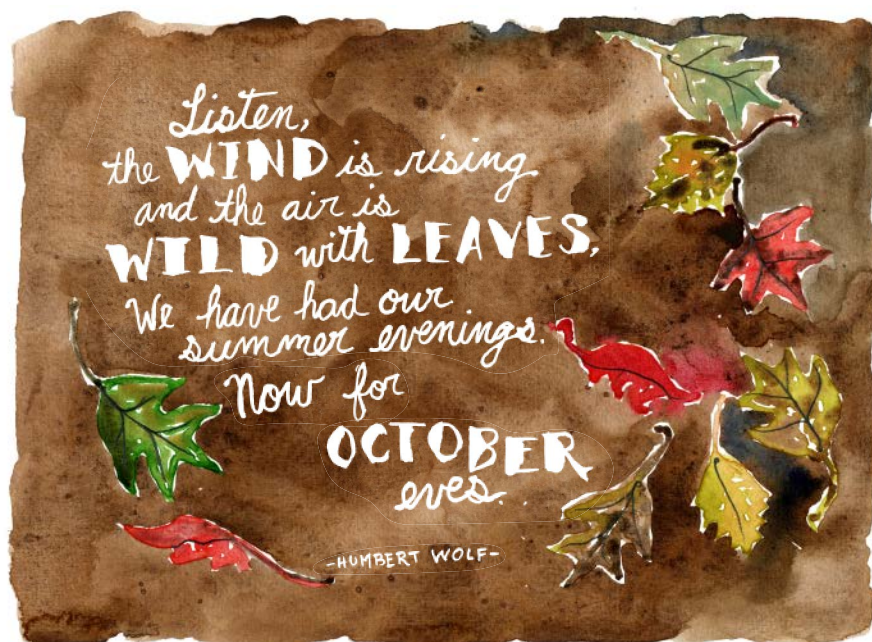 Listen,
the WIND is rising
and the air is
WILD with LEAVES,
We have had our
summer evenings.
Now for
OCTOBER
eves.
-HUMBERT WOLF-